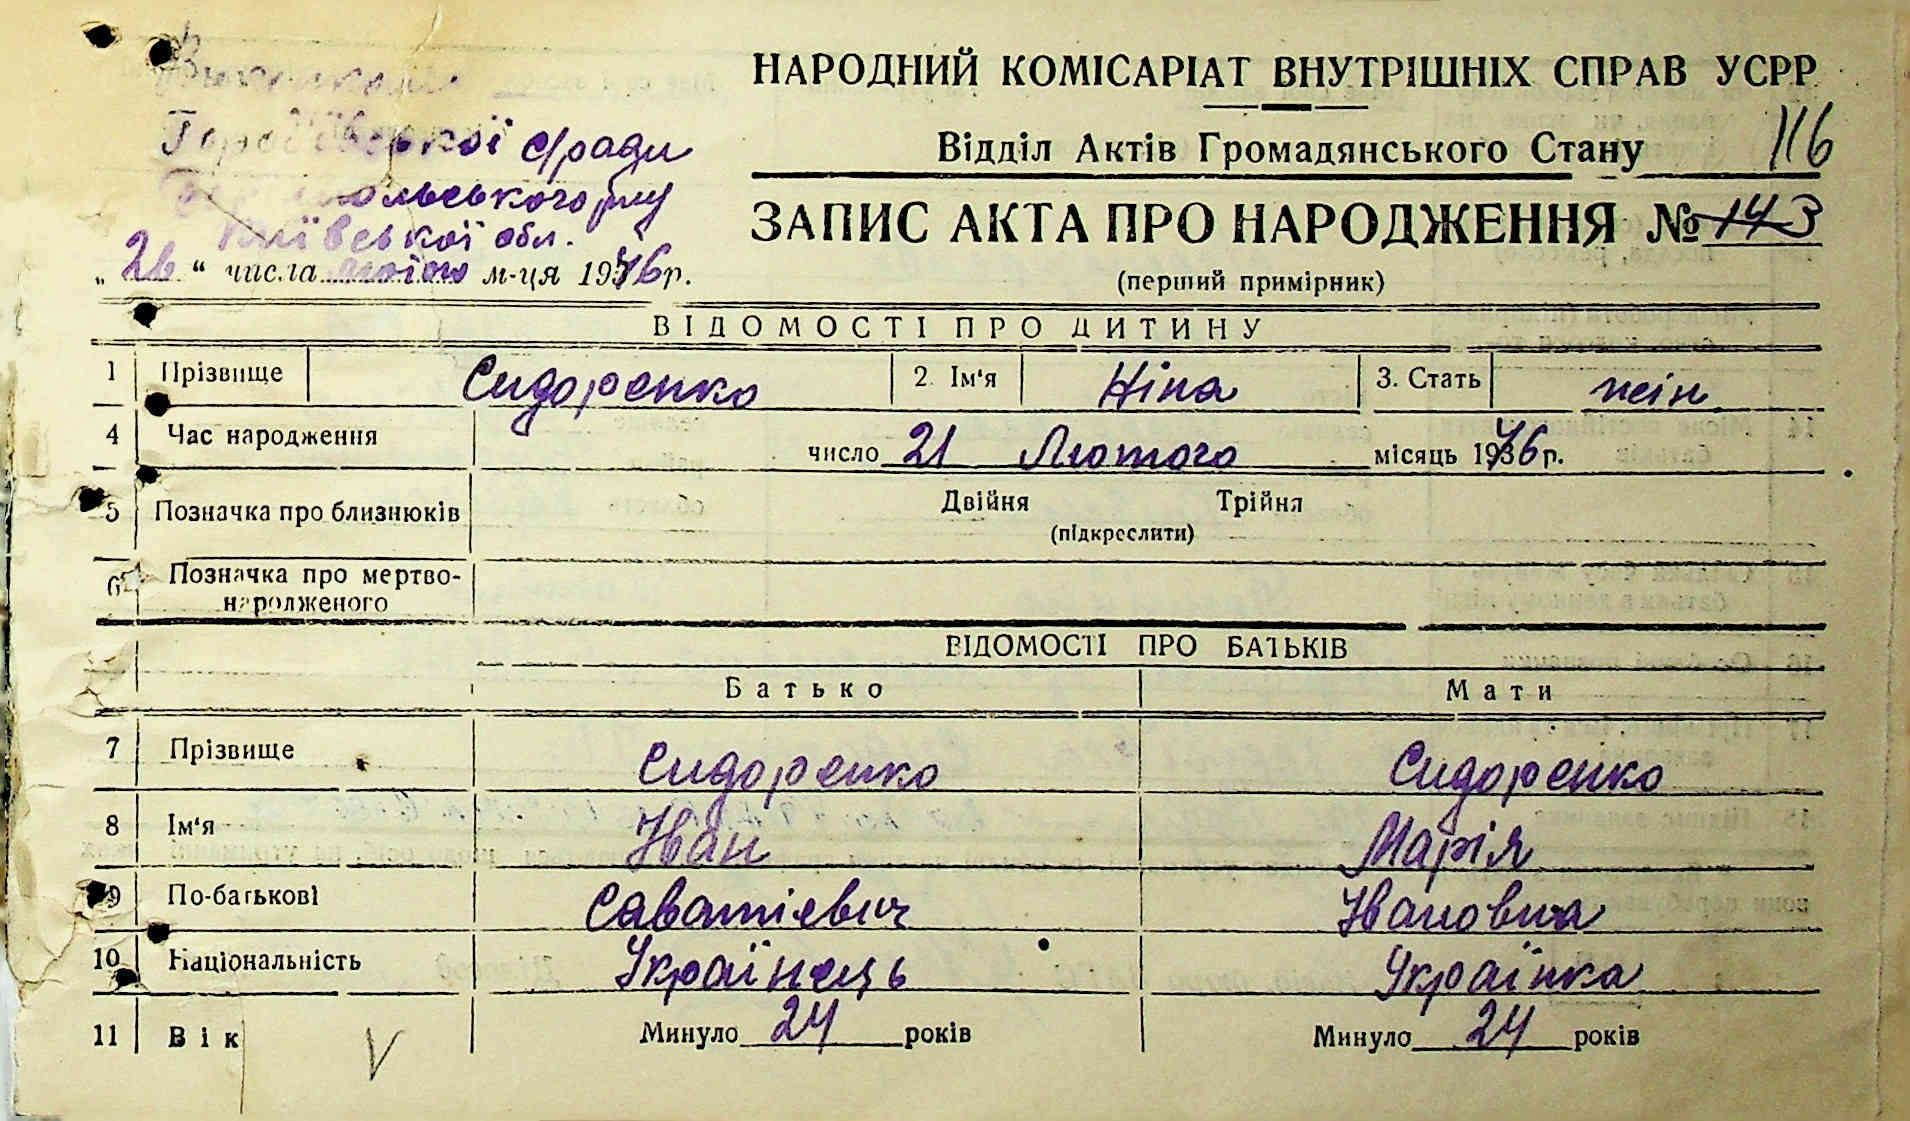 НАРОДНИЙ КОМІСАРІАТ ВНУТРІШНІХ СПРАВ УСРР
Відділ Актів Громадянського Стану 116
ЗАПИС АКТА ПРО НАРОДЖЕННЯ № 143
(перший примірник)
сради
Київської обл.
„26“ числа лютого м-ця 1946 р.
ВІДОМОСТІ ПРО ДИТИНУ
1 Прізвище Сидоренко 2. Ім'я Ніна 3. Стать жін
4 Час народження число 21 Лютого місяць 1946 р.
5 Позначка про близнюків Двійня Трійня
(підкреслити)
6 Позначка про мертво-
народженого
ВІДОМОСТІ ПРО БАТЬКІВ
Батько Мати
7 Прізвище Сидоренко Сидоренко
8 Ім'я Іван Марія
9 По-батькові Саватієвич Івановна
10 Національність Українець Українка
11 Вік Минуло 24 років Минуло 24 років